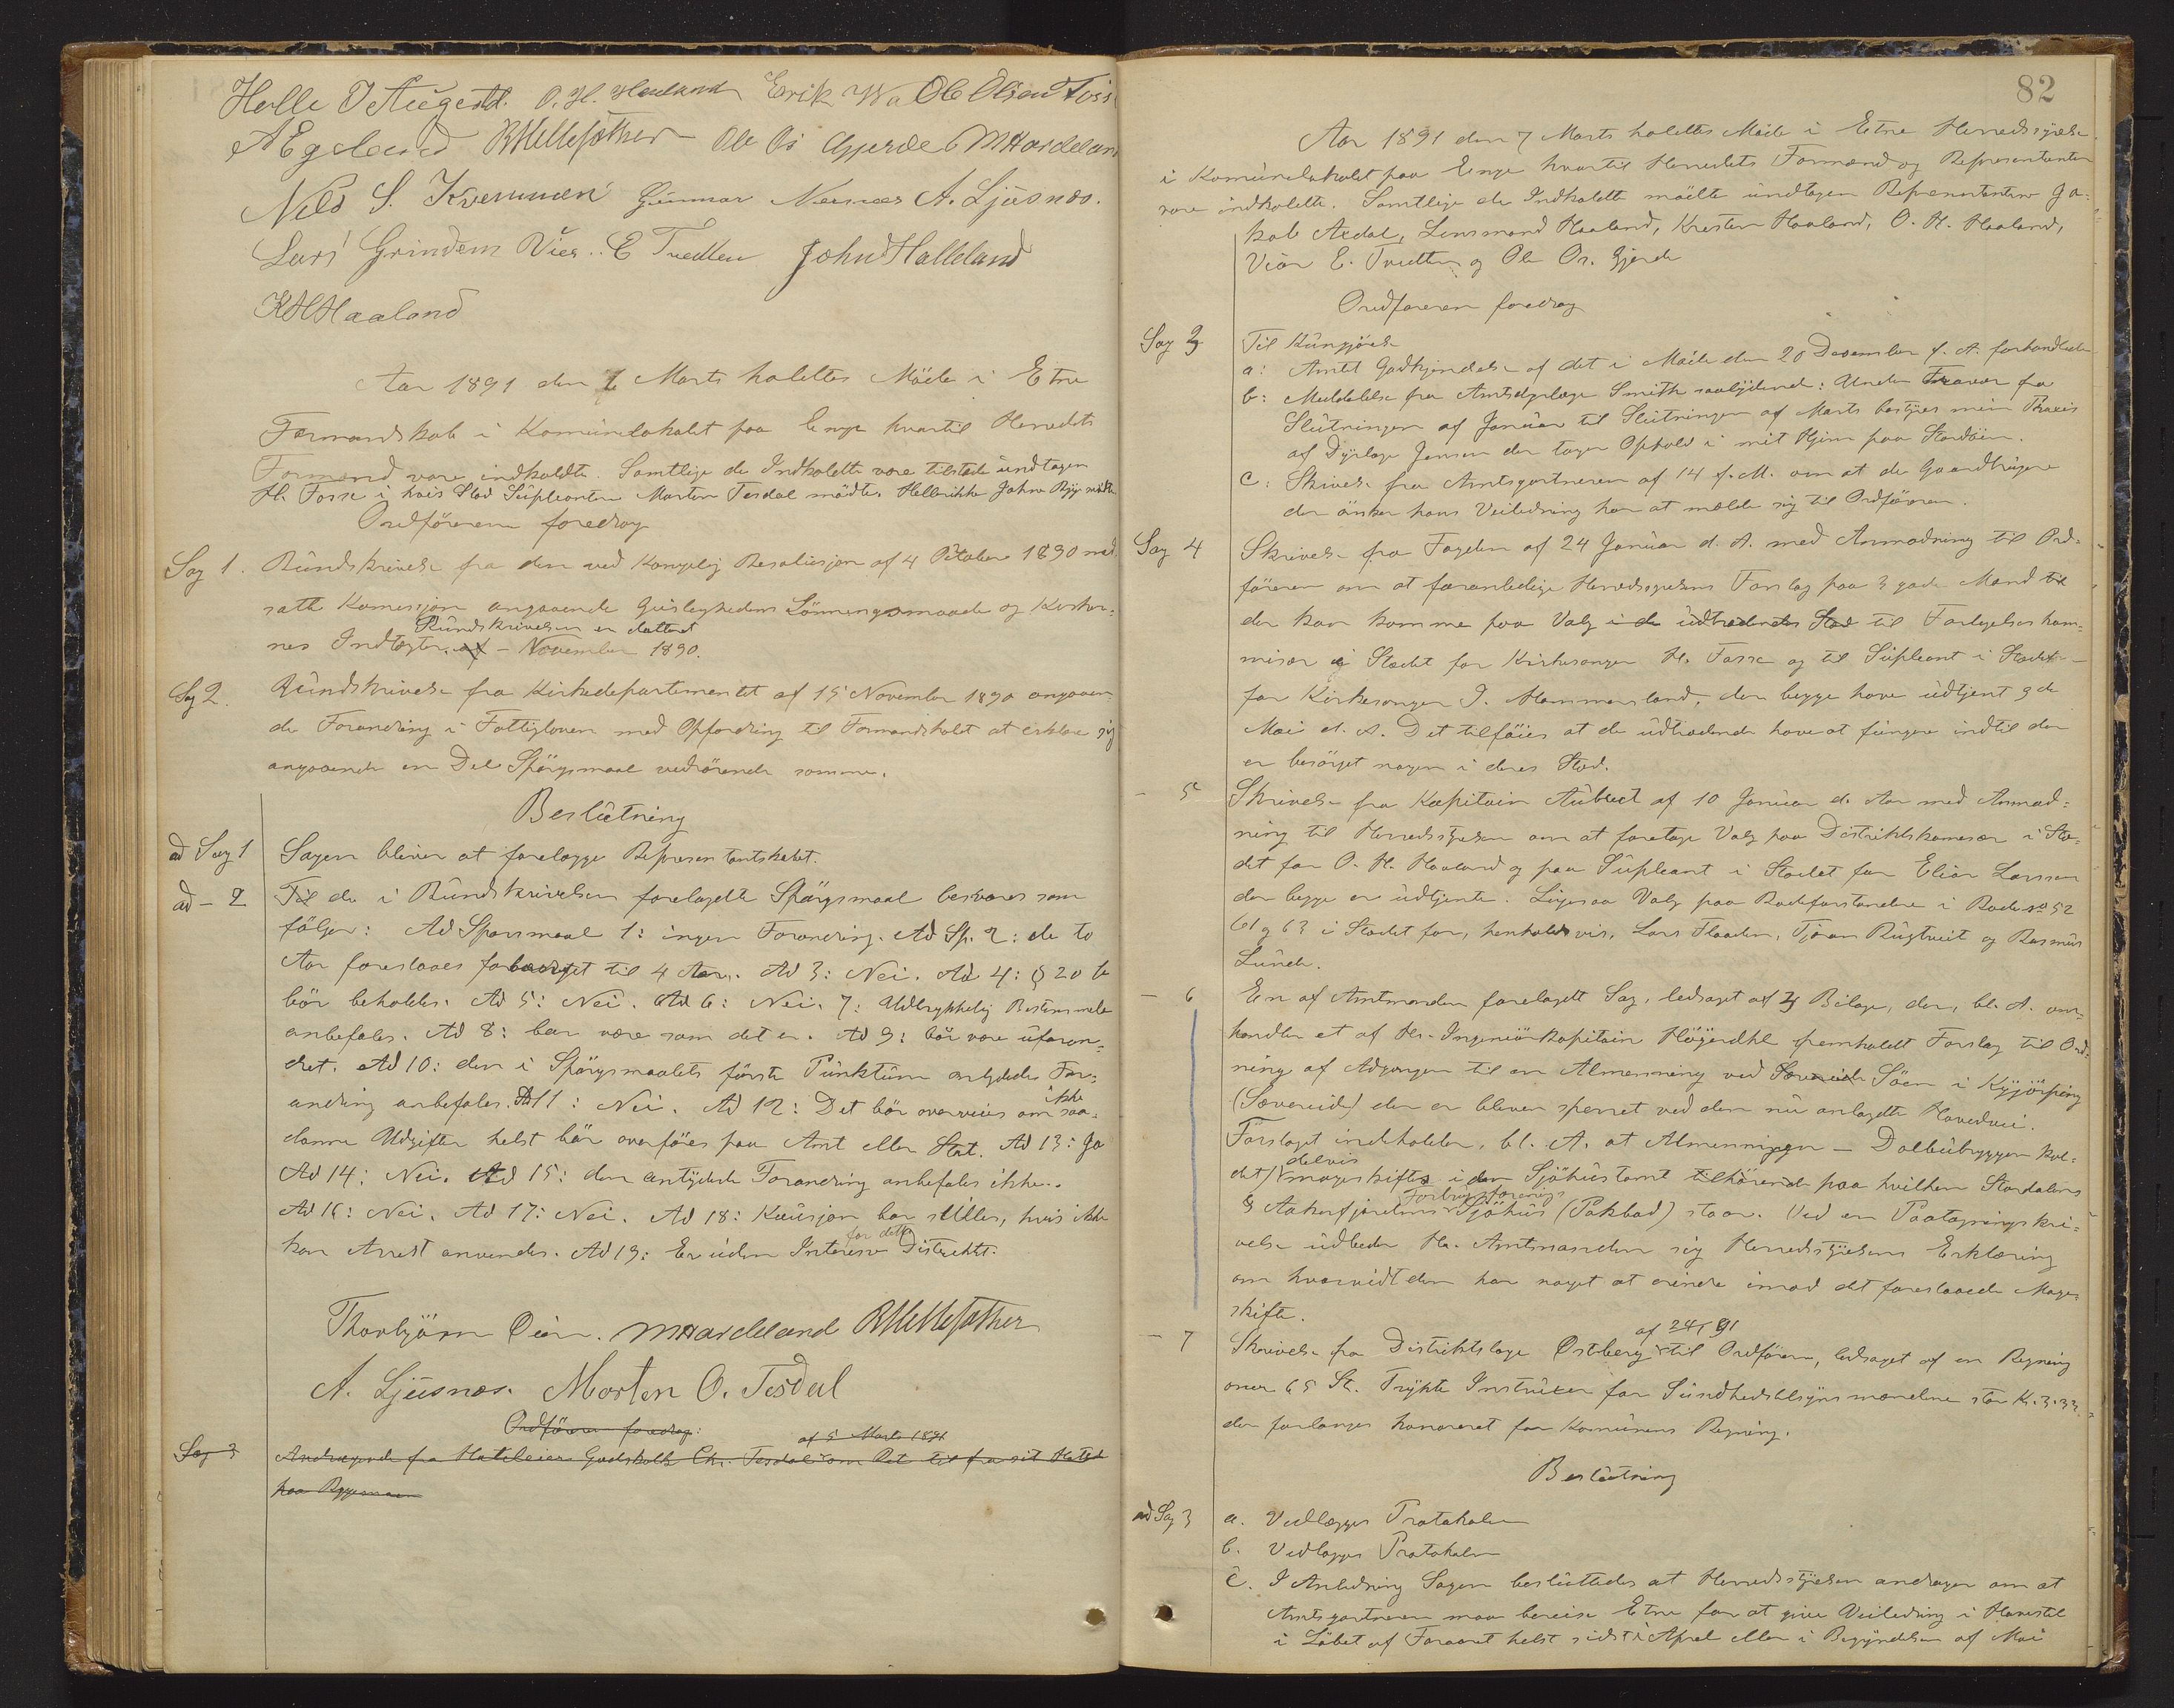 Helle O Augestd. O. H. Haaland Erik Wa Ole Olsen Foss
A Egeland RHellesøther Ole Os Gjerde MHardeland
Nils S. Kvammen Gunnar Nernæs A. Ljusnæs.
Lars Grindem Vier E Tvedten John Halleland
KHHaaland
Aar 1891 den 7 Marts holdtes Möde i Etne
Formandskab i Komunelokalet paa Enge hvortil Herredets
Formænd vare indkaldte. Samtlige de Indkaldte vare tilstede undtagen
H. Fosse i hvis Sted Supleanten Morten Tesdal mødte.
Ordföreren foredrog
Sag 1. Rundskrivelse fra den ved Kongelig Resolusjon af 4 Oktober 1890 ned
satte Komissjon angaaende Geistlighedens Lönningsmaade og Kirker-
Rundskrivelsen er datteret
nes Indtægter. af – November 1890.
Sag 2. Rundskrivelse fra Kirkedepartementet af 15 November 1890 angaaen-
de Forandring i Fattigloven med Opfordring til Formandskabet at erklære sig
angaaende en Del Spörgsmaal vedrörende samme.
Beslutning
ad Sag 1 Sagen bliver at forelægge Representantskabet.
ad – 2 Til de i Rundskrivelsen forelagdte Spörgsmaal besvares som
fölger: Ad Sporsmaal 1: ingen Forandring. Ad Sp. 2: de to
Aar foreslaaes forlænget til 4 Aar. Ad 3: Nei. Ad 4: § 20 b
bör beholdes. Ad 5: Nei. Ad 6: Nei. 7: Udtrykkelig Bestemmelse
anbefales. Ad 8: bør være som det er. Ad 9: bör være uforan-
dret. Ad 10: den i Spörgsmaalets förste Punktum antydede For-
andring anbefales. Ad 11: Nei. Ad 12: Det bör overveies om ikke saa-
danne Udgifter helst bör overföres paa Amt eller Stat. Ad 13: Ja
Ad 14: Nei. Ad 15: den antydede Forandring anbefales ikke.
Ad 16: Nei. Ad 17: Nei. Ad 18: Kausjon bør stilles, hvis ikke
for dette
kan Arrest anvendes. Ad 19: Er uden Interesse Distrikt.
Thorbjörn Öien. MHardeland RHellesøther
A. Ljusnæs. Morten O. Tesdal
Ordföreren foredrog:
af 5 Marts 1891
Sag 3 Andragende fra Ch. Tesdal om Ret til fra sit
paa
82
Aar 1891 den 7 Marts holdtes Möde i Etne Herredsstyrelse
i Komunelokalet paa Enge hvortil Herredets Formænd og Representanter
vare indkaldte. Samtlige de Indkaldte mödte undtagen Representanterne Ja-
kob Aedal, Lensmand Haaland, Kresten Haaland, O. H. Haaland,
Vier E. Tvedten og Ole Os. Gjerde
Ordföreren foredrog
Sag 3 Til Kungjörelse
a: Amtets Godkjendelse af det i Möde den 20 December f. A. forhandlede
b: Meddelelse fra Amtsdyrlæge Smith saalydende: Under Fravær fra
Slutningen af Januar til Slutningen af Marts bestyres min Praxis
af Dyrlæge Jensen der tager Ophold i mit Hjem paa Stordöen.
c: Skrivelse fra Amtsgartneren af 14 f. M. om at de Gaardbrugere
der önsker hans Veiledning har at melde sig til Ordföreren.
Sag 4 Skrivelse fra Fogden af 24 Januar d. A. med Anmodning til Ord-
föreren om at foranledige Herredsstyrelsens Forslag paa 3 gode Mænd til
der kan komme paa Valg i de udtrædendes Sted til Forligelseskom-
misær i Stedet for Kirkesanger H. Fosse og til Supleant i Stedet
for Kirkesanger J. Hammersland, der begge have udtjent 9de
Mai d. A. Det tilföies at de udtrædende have at fungere indtil der
er besörget nogen i deres Sted.
– 5 Skrivelse fra Kapitain Aubert af 10 Januar d. Aar med Anmod-
ning til Herredsstyrelsen om at foretage Valg paa Distriktskomisær i Ste-
det for O. H. Haaland og paa Supleant i Stedet for Elias Larssen
der begge er udtjente. Ligesaa Valg paa Rodeforstandere i Rode No 52
61 og 63 i Stedet for, henholdsvis, Lars Flaaden, Tjöran Rugtveit og Rasmus
Lunde.
– 6 En af Amtmanden forelagdt Sag, ledsaget af 3 Bilage, der, bl. A. om-
handler et af Hr. Ingeniörkapitain Höÿerdhl fremholdt Forslag til Ord-
ning af Adgangen til en Almenning ved Sævereide Söen i Kyrping
(Sævereide) der er bleven sperret ved den nu anlagdte Hovedvei.
Forslaget indeholder, bl. A. at Almenningen – Dalbubryggen kal-
delvis
det) mageskiftes i den Sjöhustomt tilhörende paa hvilken Stordalens
Forbrugsforenings
& Aakrefjordens Sjöhus (Pakbod) staar. Ved en Paategningsskri-
velse udbeder Hr. Amtmanden sig Herredsstyrelsens Erklæring
om hvorvidt den har noget at erindre imod det foreslaaede Mage-
skifte.
af 24/1 91
– 7 Skrivelse fra Distriktslæge Østberg til Ordföreren, ledsaget af en Regning
over 65 St. Trykte Instruxer for Sundhedstilsynsmændene stor Kr. 3.33
der forlanges honoreret for Komunens Regning.
Beslutning
ad Sag 3 a. Vedlægges Protokolen
b. Vedlægges Protokolen
c. I Anledning Sagen besluttedes at Herredsstyrelsen andrager om at
Amtsgartneren maa bereise Etne for at give Veiledning i Havestel
i Löbet af Foraaret helst sidst i April eller i Begyndelsen af Mai